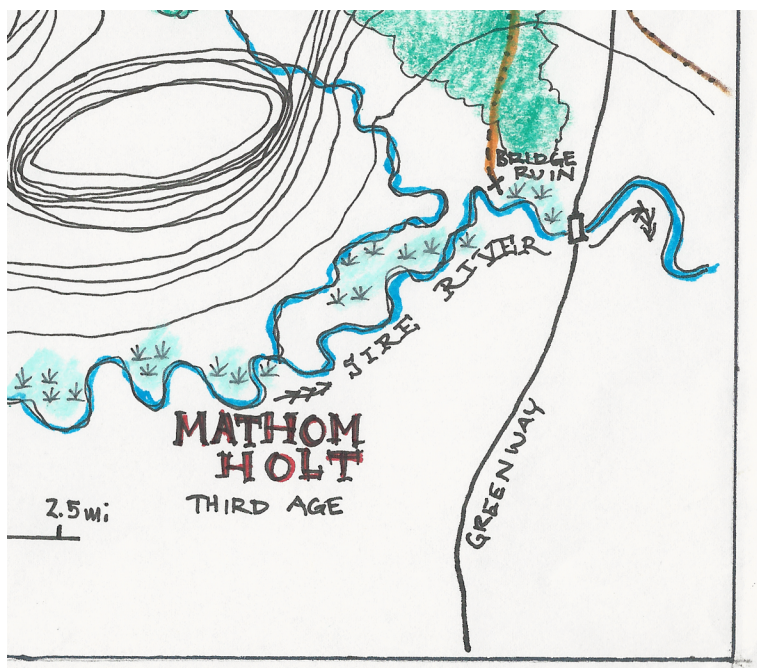 BRIDGE
RUIN
SIRE RIVER
MATHOM
HOLT
THIRD AGE
2.5mi
GREENWAY